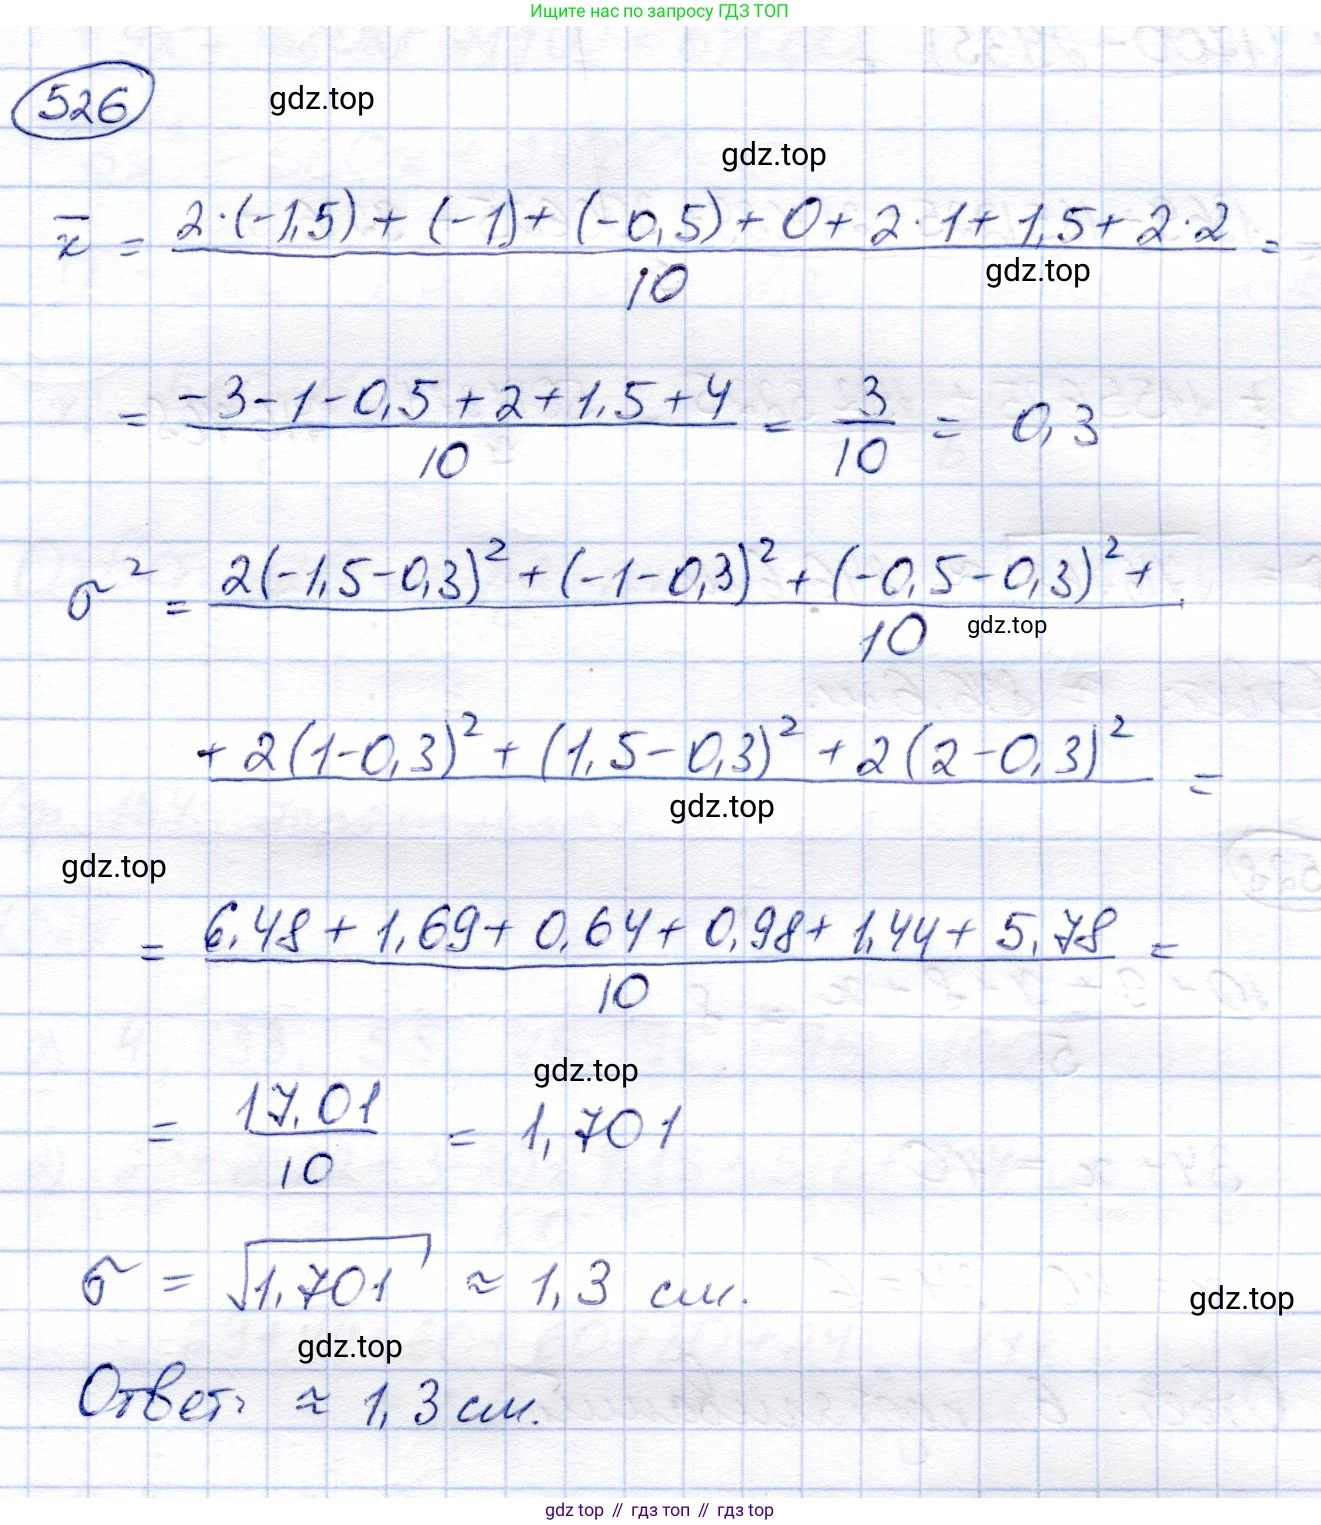 Ищите нас по запросу ГДЗ ТОП
526
gdz.top
gdz.top
x̄ = (2·(-1,5) + (-1) + (-0,5) + 0 + 2·1 + 1,5 + 2·2)/10 =
gdz.top
= (-3-1-0,5+2+1,5+4)/10 = 3/10 = 0,3
σ² = (2(-1,5-0,3)² + (-1-0,3)² + (-0,5-0,3)² +
10
gdz.top
+ 2(1-0,3)² + (1,5-0,3)² + 2(2-0,3)² =
gdz.top
gdz.top
= (6,48 + 1,69 + 0,64 + 0,98 + 1,44 + 5,78)/10 =
gdz.top
= 17,01/10 = 1,701
σ = √1,701 ≈ 1,3 см.
gdz.top
gdz.top
Ответ: ≈ 1,3 см.
gdz top // гдз топ // гдз top